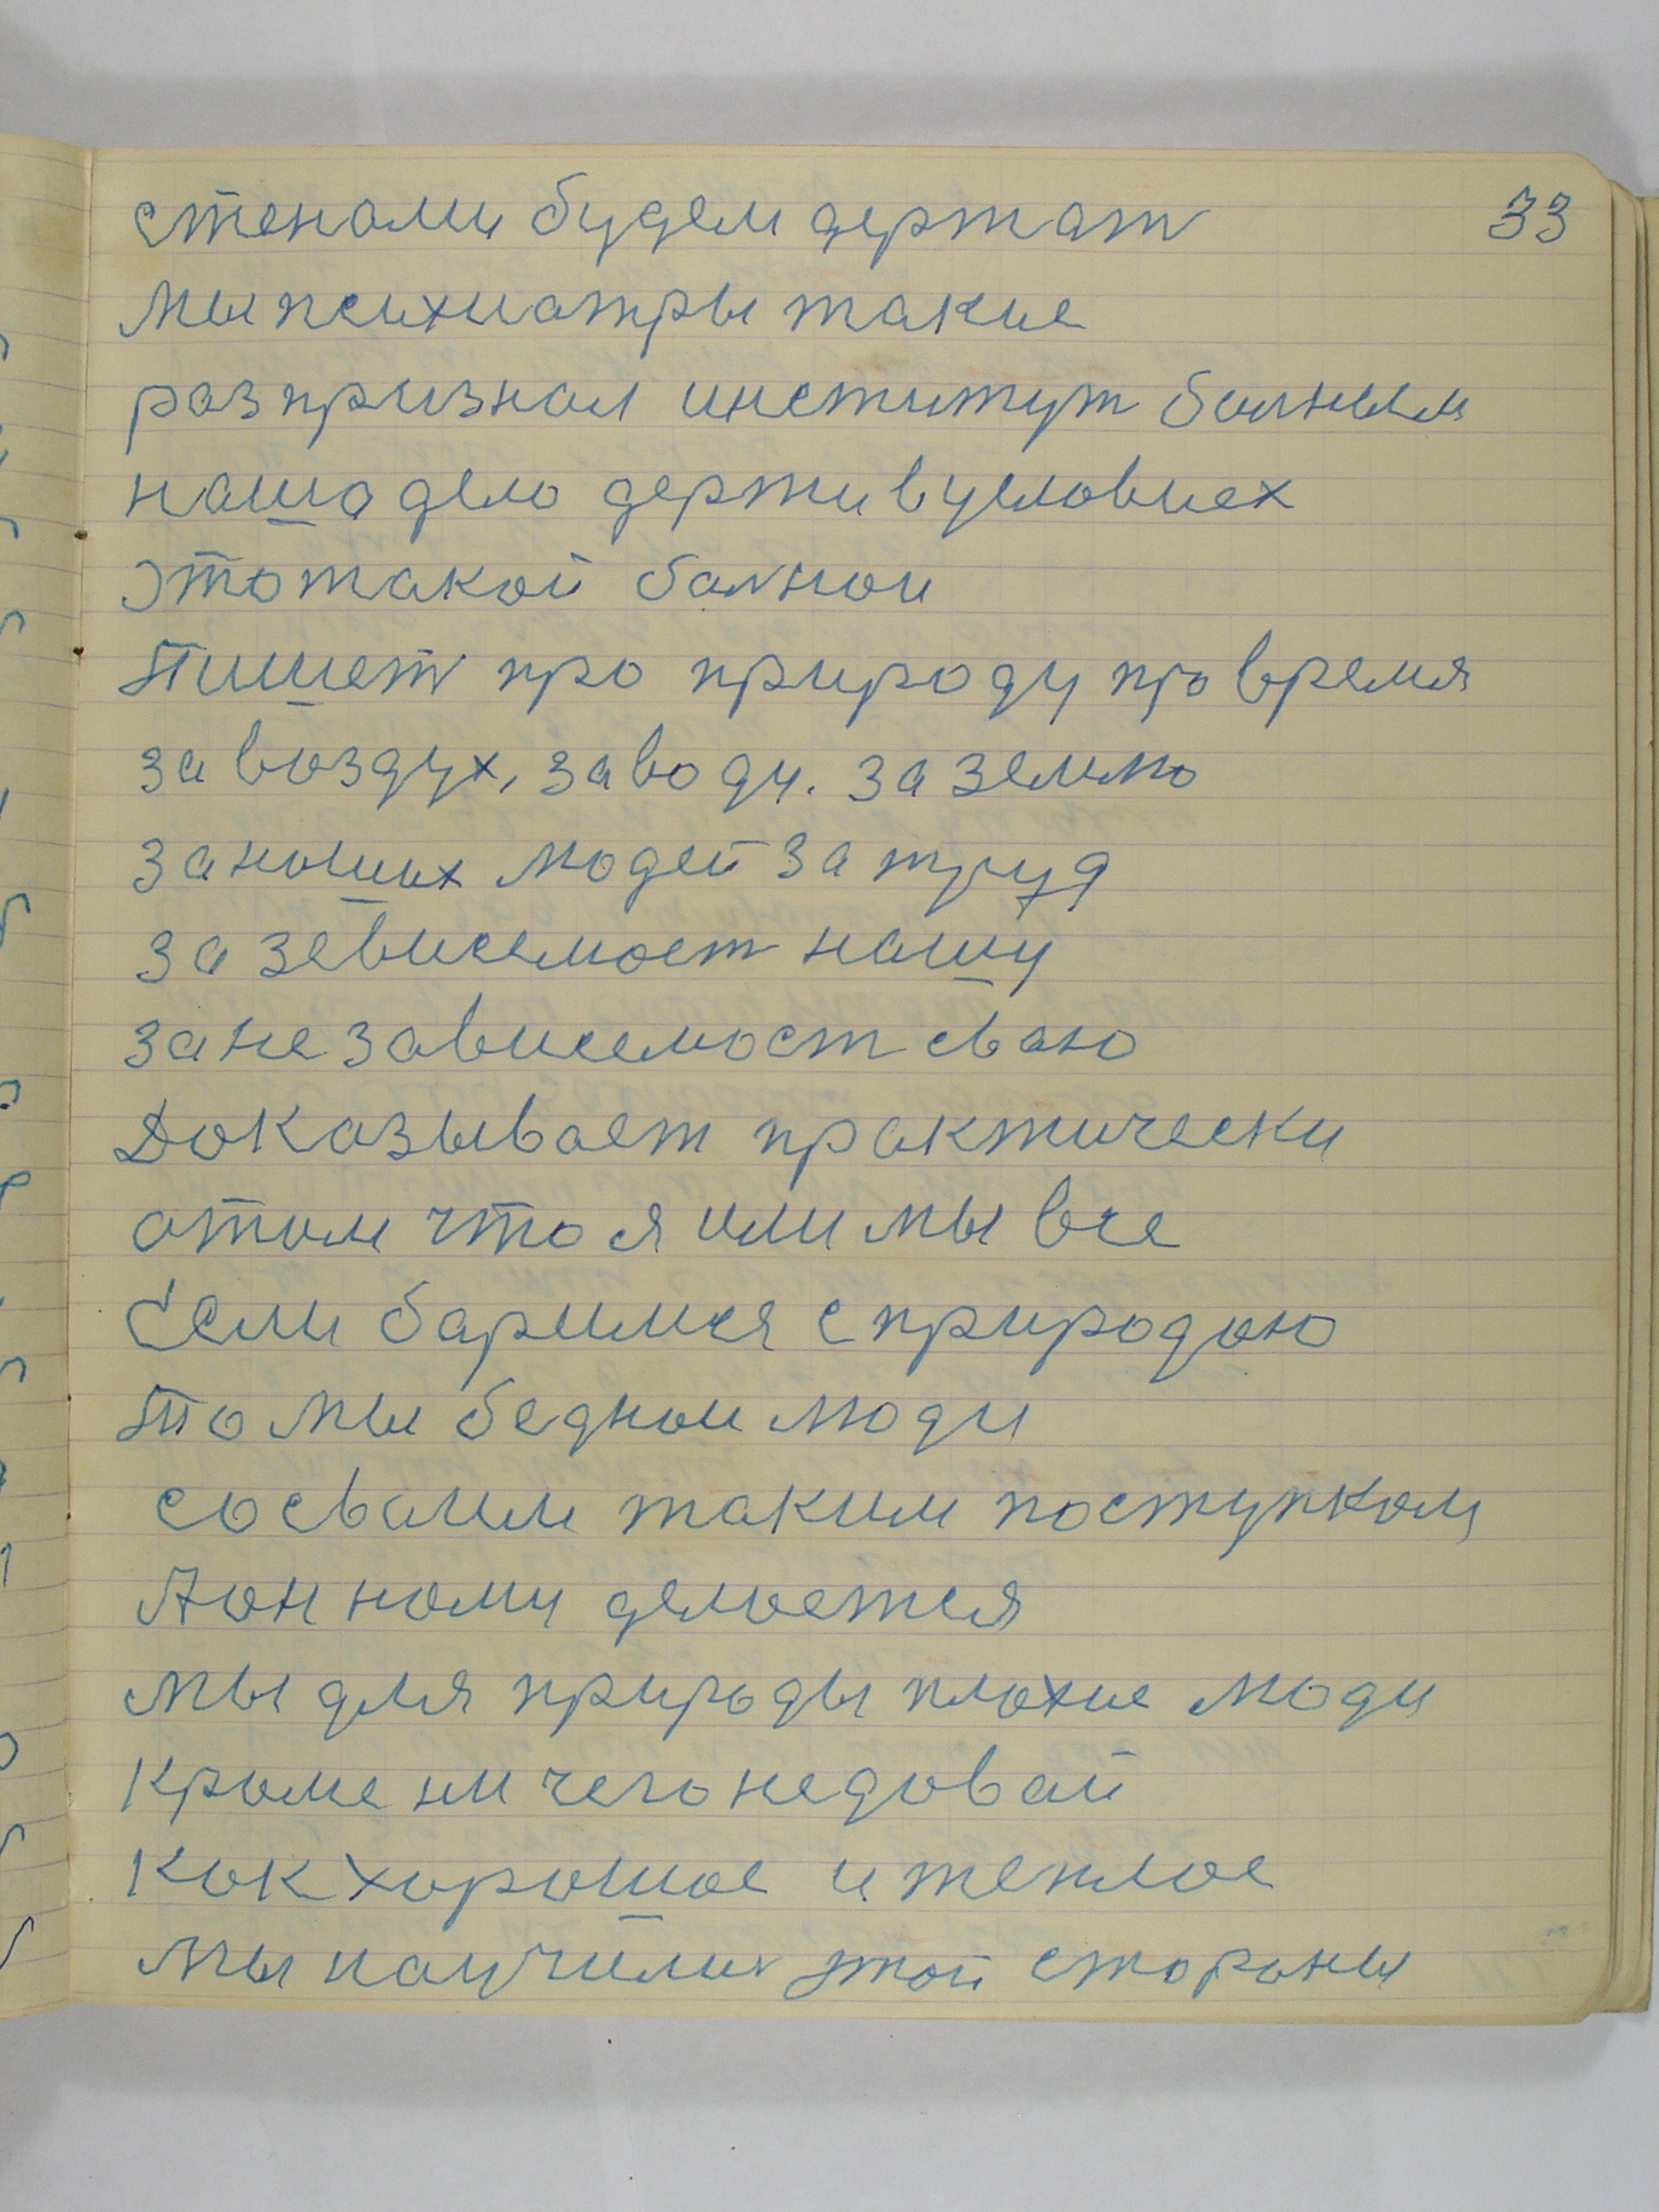 стенами будем держат
33
мы психиатры такие
раз признал институт болным
наша дело держи в условиех
это такой балной
Пишет про природу про время
за воздух, за воду. за землю
за наших людей за труд
за зевисемост нашу
за не зависемост сваю
Доказывает практически
отом что я или мы все
Если баримся с природою
То мы беднои люди
со сваим таким поступком
А он нами делается
мы для природы плохие люди
кроме ни чего недовай
как хорошое и теплое
мы научили этой стороны